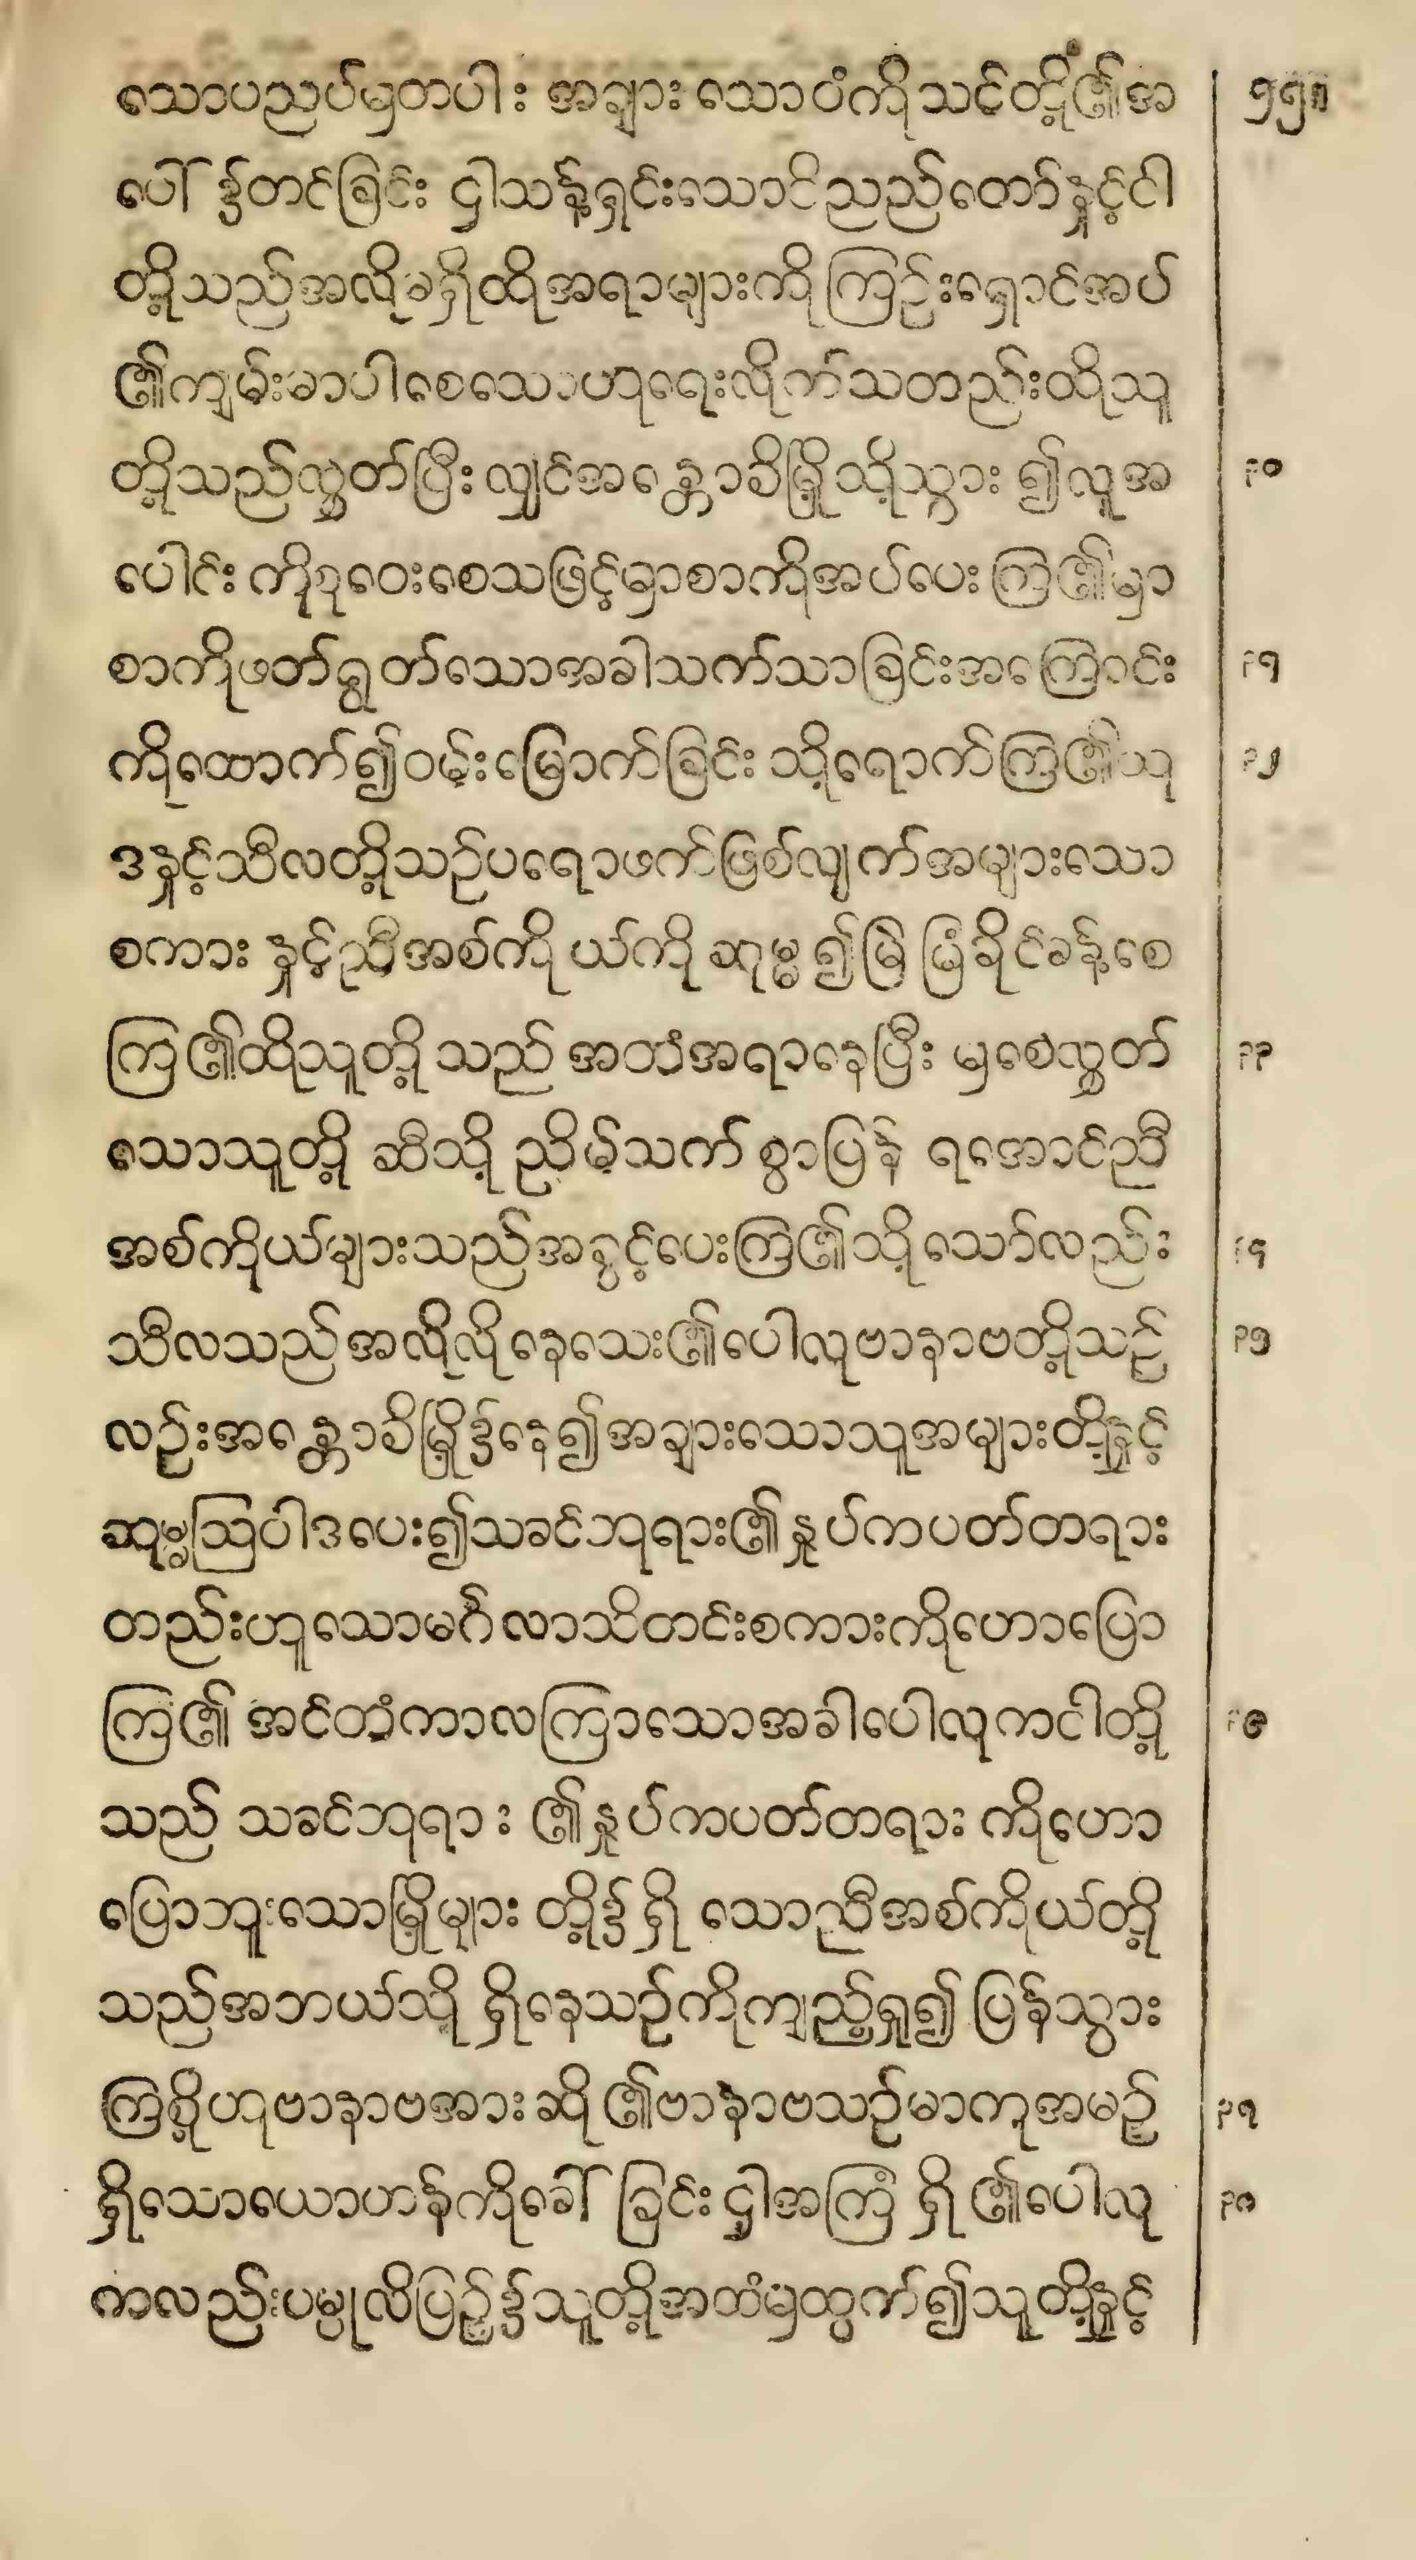 သောပညပ်မှတပါး အချားသောဝံကိုသင်တို့၏အ ၅၅၈
ပေါ်၌တင်ခြင်း ငှါသန့်ရှင်းသောဝိညည်တော်နှင့်ငါ
တို့သည်အလိုခရှိထိုအရာများကိုကြဉ်းရှောင်အပ်
၏ကျမ်းမာပါစေသောဟုရေးလိုက်သတည်းထိုသူ
တို့သည်လွှတ်ပြီးလျှင်အန္တောခိမြို့သို့သွား၍လူအ ၃၀
ပေါင်းကိုစုဝေးစေသဖြင့်မှာစာကိုအပ်ပေးကြ၏မှာ
စာကိုဖတ်ရွတ်သောအခါသက်သာခြင်းအကြောင်း ၃၁
ကိုထောက်၍ဝမ်းမြောက်ခြင်းသို့ရောက်ကြ၏ယု ၃၂
ဒနှင့်သီလတို့သဉ်ပရောဖက်ဖြစ်လျက်အများသော
စကားနှင့်ညီအစ်ကိုယ်ကိုဆုမ္မ၍မြဲမြံခိုင်ခန့်စေ
ကြ၏ထိုသူတို့သည်အတံအရာနေပြီးမှစေလွှတ် ၃၃
သောသူတို့ဆီသို့ညိမ့်သက်စွာပြန်ရအောင်ညီ
အစ်ကိုယ်များသည်အခွင့်ပေးကြ၏သို့သော်လည်း ၃၄
သီလသည်အလိုလိုနေသေး၏ပေါလုဗာနာဗတို့သဉ် ၃၅
လဉ်းအန္တောခိမြို့၌နေ၍အချားသောသူအများတို့နှင့်
ဆုမ္မဩဝါဒပေး၍သခင်ဘုရား၏နှုပ်ကပတ်တရား
တည်းဟူသောမင်္ဂလာသိတင်းစကားကိုဟောပြော
ကြ၏အင်တံကာလကြာသောအခါပေါလုကငါတို့ ၃၆
သည်သခင်ဘုရား၏နှုပ်ကပတ်တရားကိုဟော
ပြောဘူးသောမြို့များတို့၌ရှိသောညီအစ်ကိုယ်တို့
သည်အဘယ်သို့ရှိနေသဉ်ကိုကျည့်ရှု၍ပြန်သွား
ကြစို့ဟုဗာနာဗအားဆို၏ဗာနာဗသဉ်မာကုအမဉ် ၃၇
ရှိသောယောဟန်ကိုခေါ်ခြင်းငှါအကြံရှိ၏ပေါလု ၃၈
ကလည်းပမ္ဖုလိပြဉ်၌သူတို့အထံမှထွက်၍သူတို့နှင့်